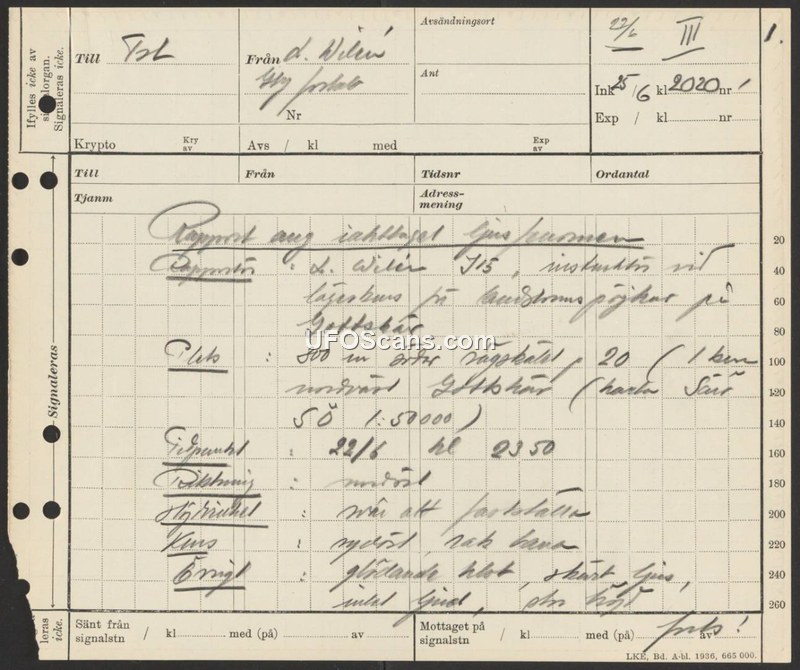 Ifylles icke av signalorgan. Signaleras icke.
Till Tst
Från L. Wilén
Gbg
Nr
Avsändningsort
Ant
22/6 III
1.
Ink 25/6 kl 2020 nr
Exp / kl nr
Krypto Kry av Avs / kl med Exp av
Till Från Tidsnr Ordantal
Tjanm Adress-mening
Signaleras
Rapport ang iakttaget ljusfenomen 20
Rapportör : L. Wilén I 15, instruktör vid 40
lägerkurs för landstormspojkar på 60
Gottskär 80
Plats : 800 m söder vägskälet p 20 (1 km 100
nordväst Gottskär (karta Särö 120
SÖ 1:50000) 140
Tidpunkt : 22/6 kl 2350 160
Riktning : nordöst 180
Höjdvinkel : svår att fastställa 200
Kurs : sydöst, rak bana 220
Övrigt : glödande klot, skärt ljus, 240
intet ljud, stor höjd 260
forts!
leras icke.
Sänt från signalstn / kl med (på) av
Mottaget på signalstn / kl med (på) av
LKE, Bd. A-bl. 1936, 665 000.
UFOScans.com